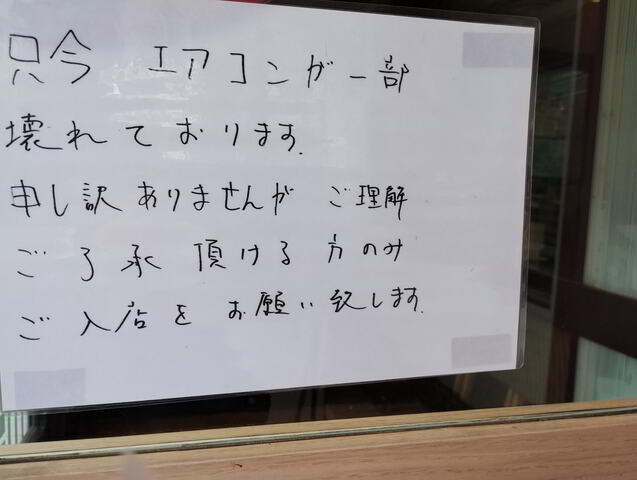 只今 エアコンが一部
壊れております.
申し訳ありませんが ご理解
ご了承 頂ける方のみ
ご入店を お願い致します.